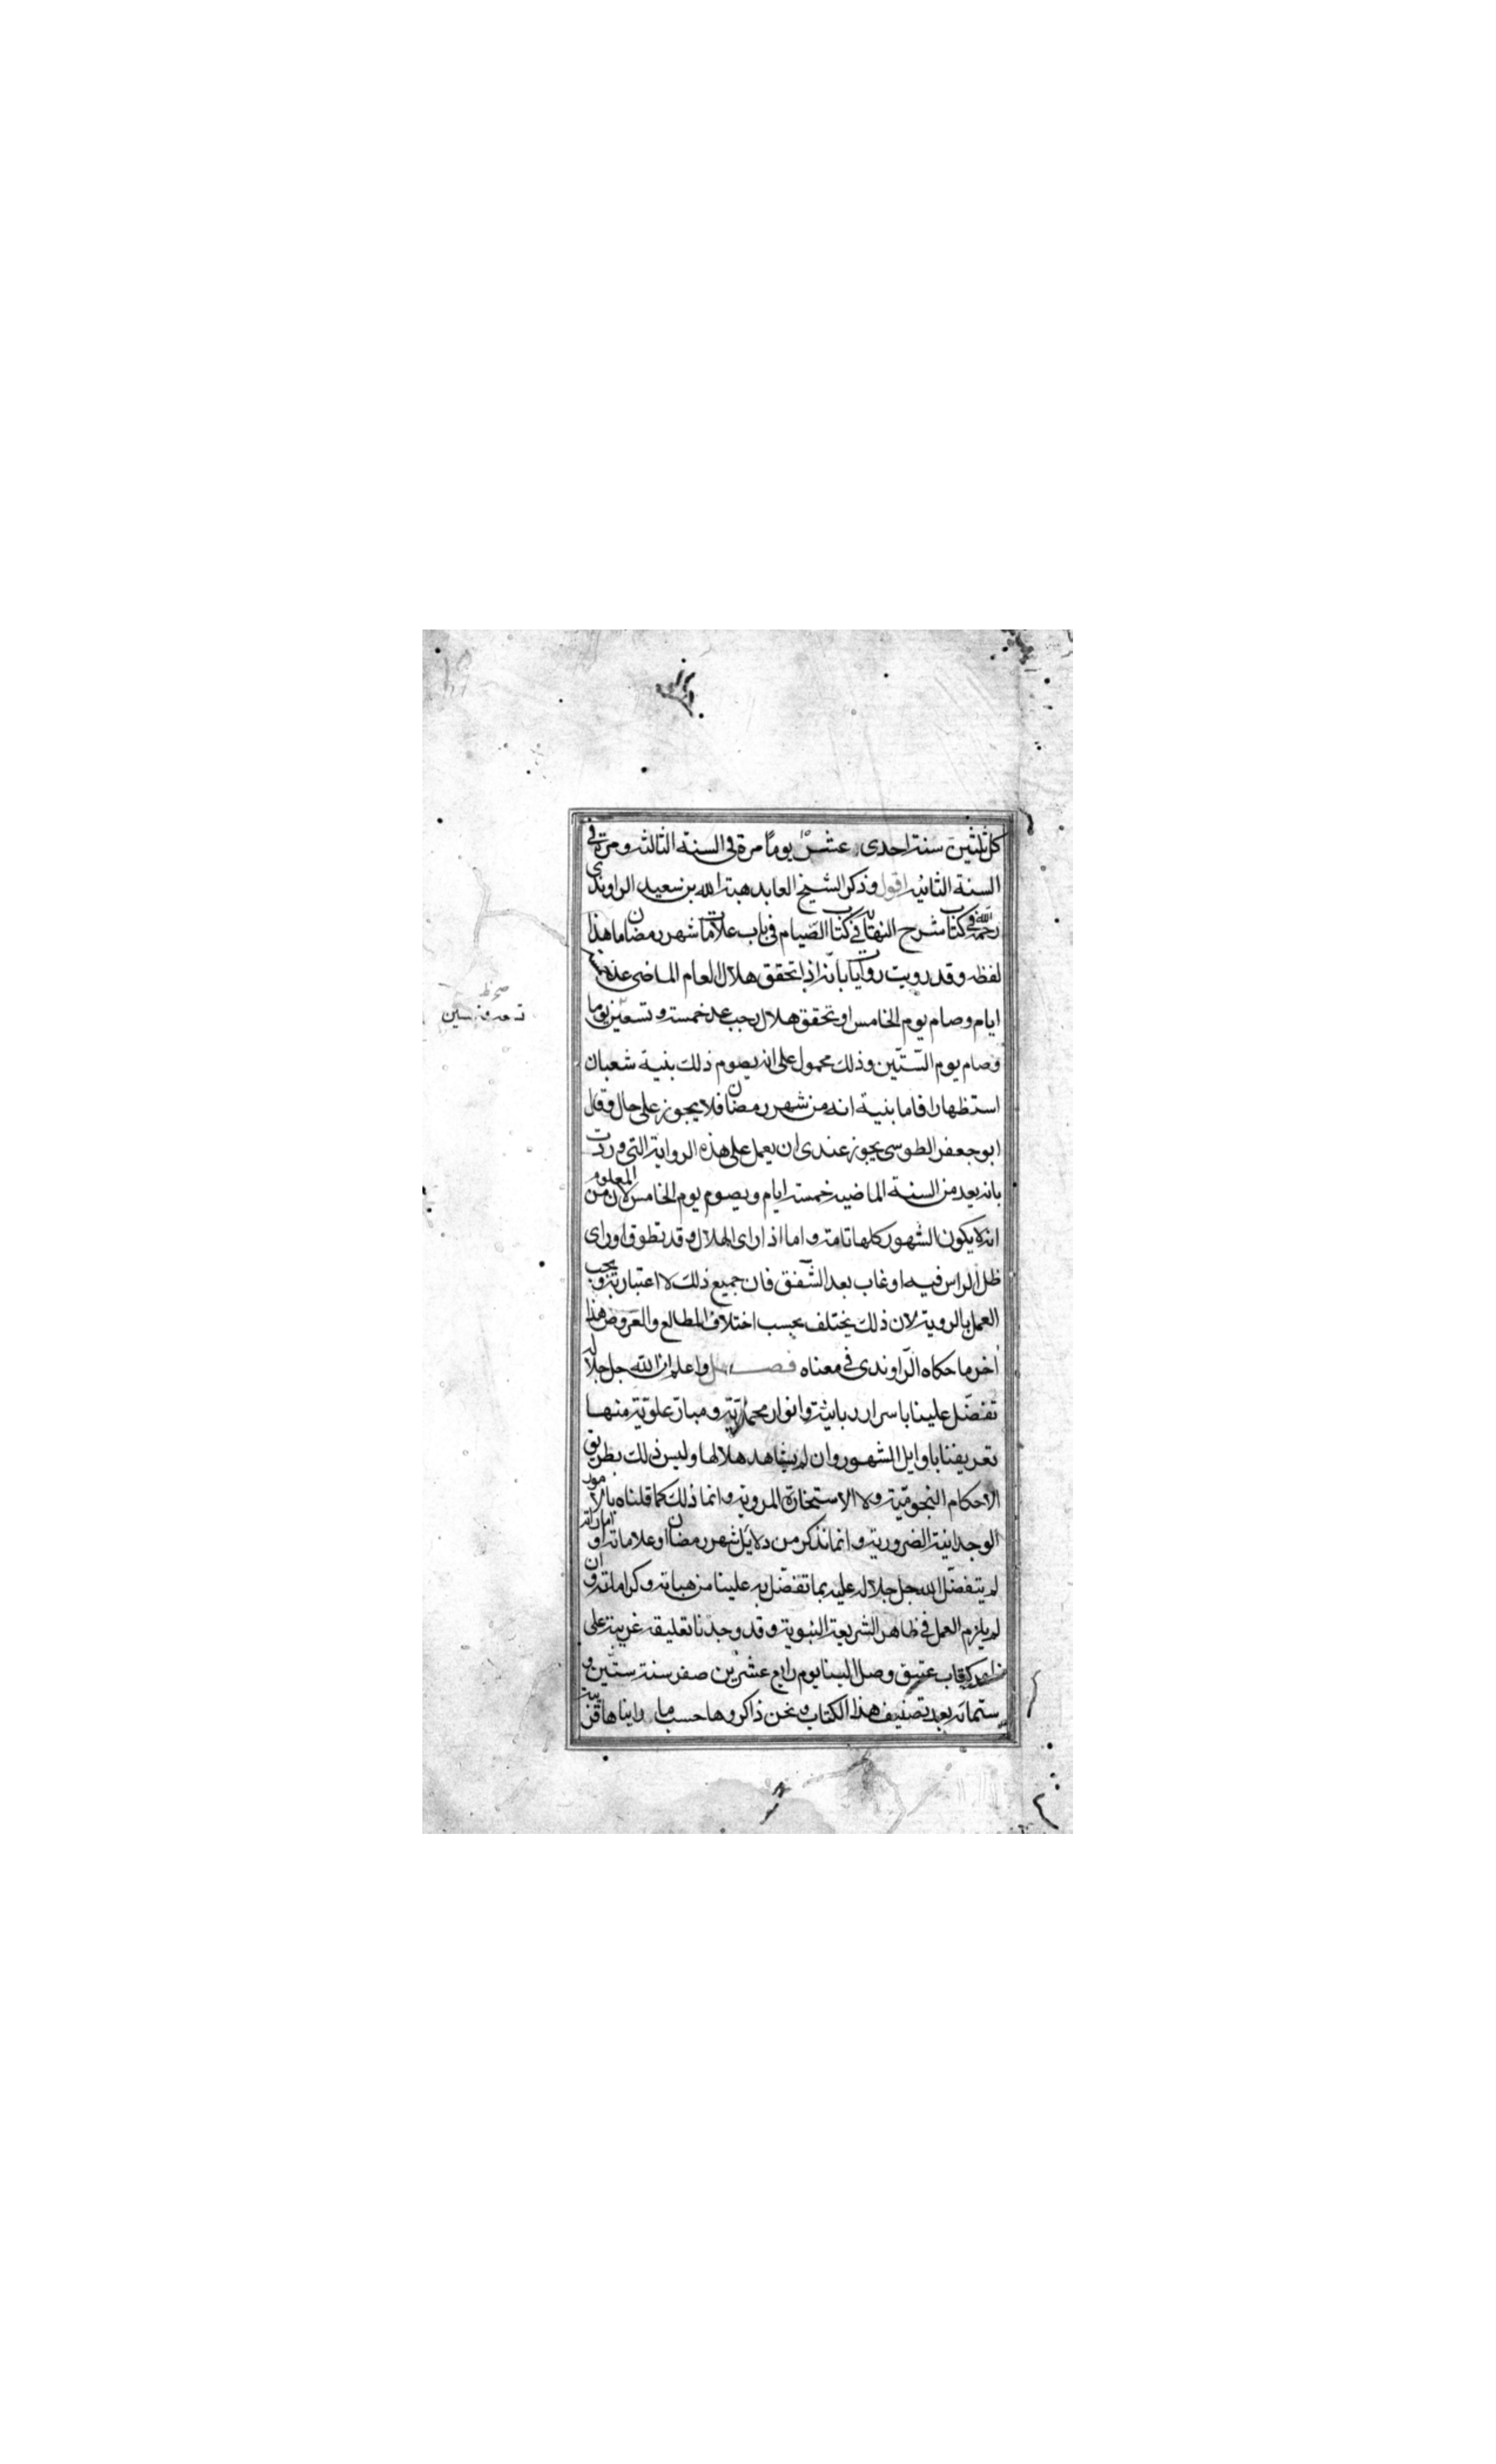 كل ثلثين سنة احدى عشر يوما مرة في السنة الثالثه ومرة في
السنة الثانيه اقول وذكر الشيخ العابد هبة الله بن سعيد الراوندي
رحمه الله في كتاب شرح النهاية في كتاب الصيام في باب علامات شهر رمضان ما هذا
لفظه وقد رويت روايات بانه اذا تحقق هلال العام الماضي عد خمسة
ايام وصام يوم الخامس او تحقق هلال رجب عد خمسة وتسعين يوما
وصام يوم الستين وذلك محمول على انه يصوم ذلك بنية شعبان
استظهارا فاما بنية انه من شهر رمضان فلا يجوز على حال وقال
ابو جعفر الطوسي يجوز عندي ان يعمل على هذه الرواية التي وردت
بانه يعد من السنة الماضيه خمسة ايام ويصوم يوم الخامس لان من المعلوم
انه لا يكون الشهور كلها تامة واما اذا راى الهلال وقد تطوق او راى
ظل الراس فيه او غاب بعد الشفق فان جميع ذلك لا اعتبار به ويجب
العمل بالروية لان ذلك يختلف بحسب اختلاف المطالع والعروض هذا
اخر ما حكاه الراوندي في معناه فصل واعلم ان الله جل جلاله
تفضل علينا باسرار ربانية وانوار محمدية ومبار علوية منها
تعريفنا باوايل الشهور وان لم يشاهد هلالها وليس ذلك بطريق
الاحكام النجومية ولا الاستخارة المروية وانما ذلك كما قلناه بالامور
الوجدانية الضرورية وانما نذكر من دلايل شهر رمضان او علاماته او اماراته
لم يتفضل الله جل جلاله عليه بما تفضل به علينا من هباته وكراماته وان
لم يلزم العمل في ظاهر الشريعة النبوية وقد وجدنا تعليقة غريبة على
كتاب عتيق وصل الينا يوم رابع عشرين صفر سنة ستين و
ستمائه بعد تصنيف هذا الكتاب ونحن ذاكروها حسب ما رايناها
صح ظ